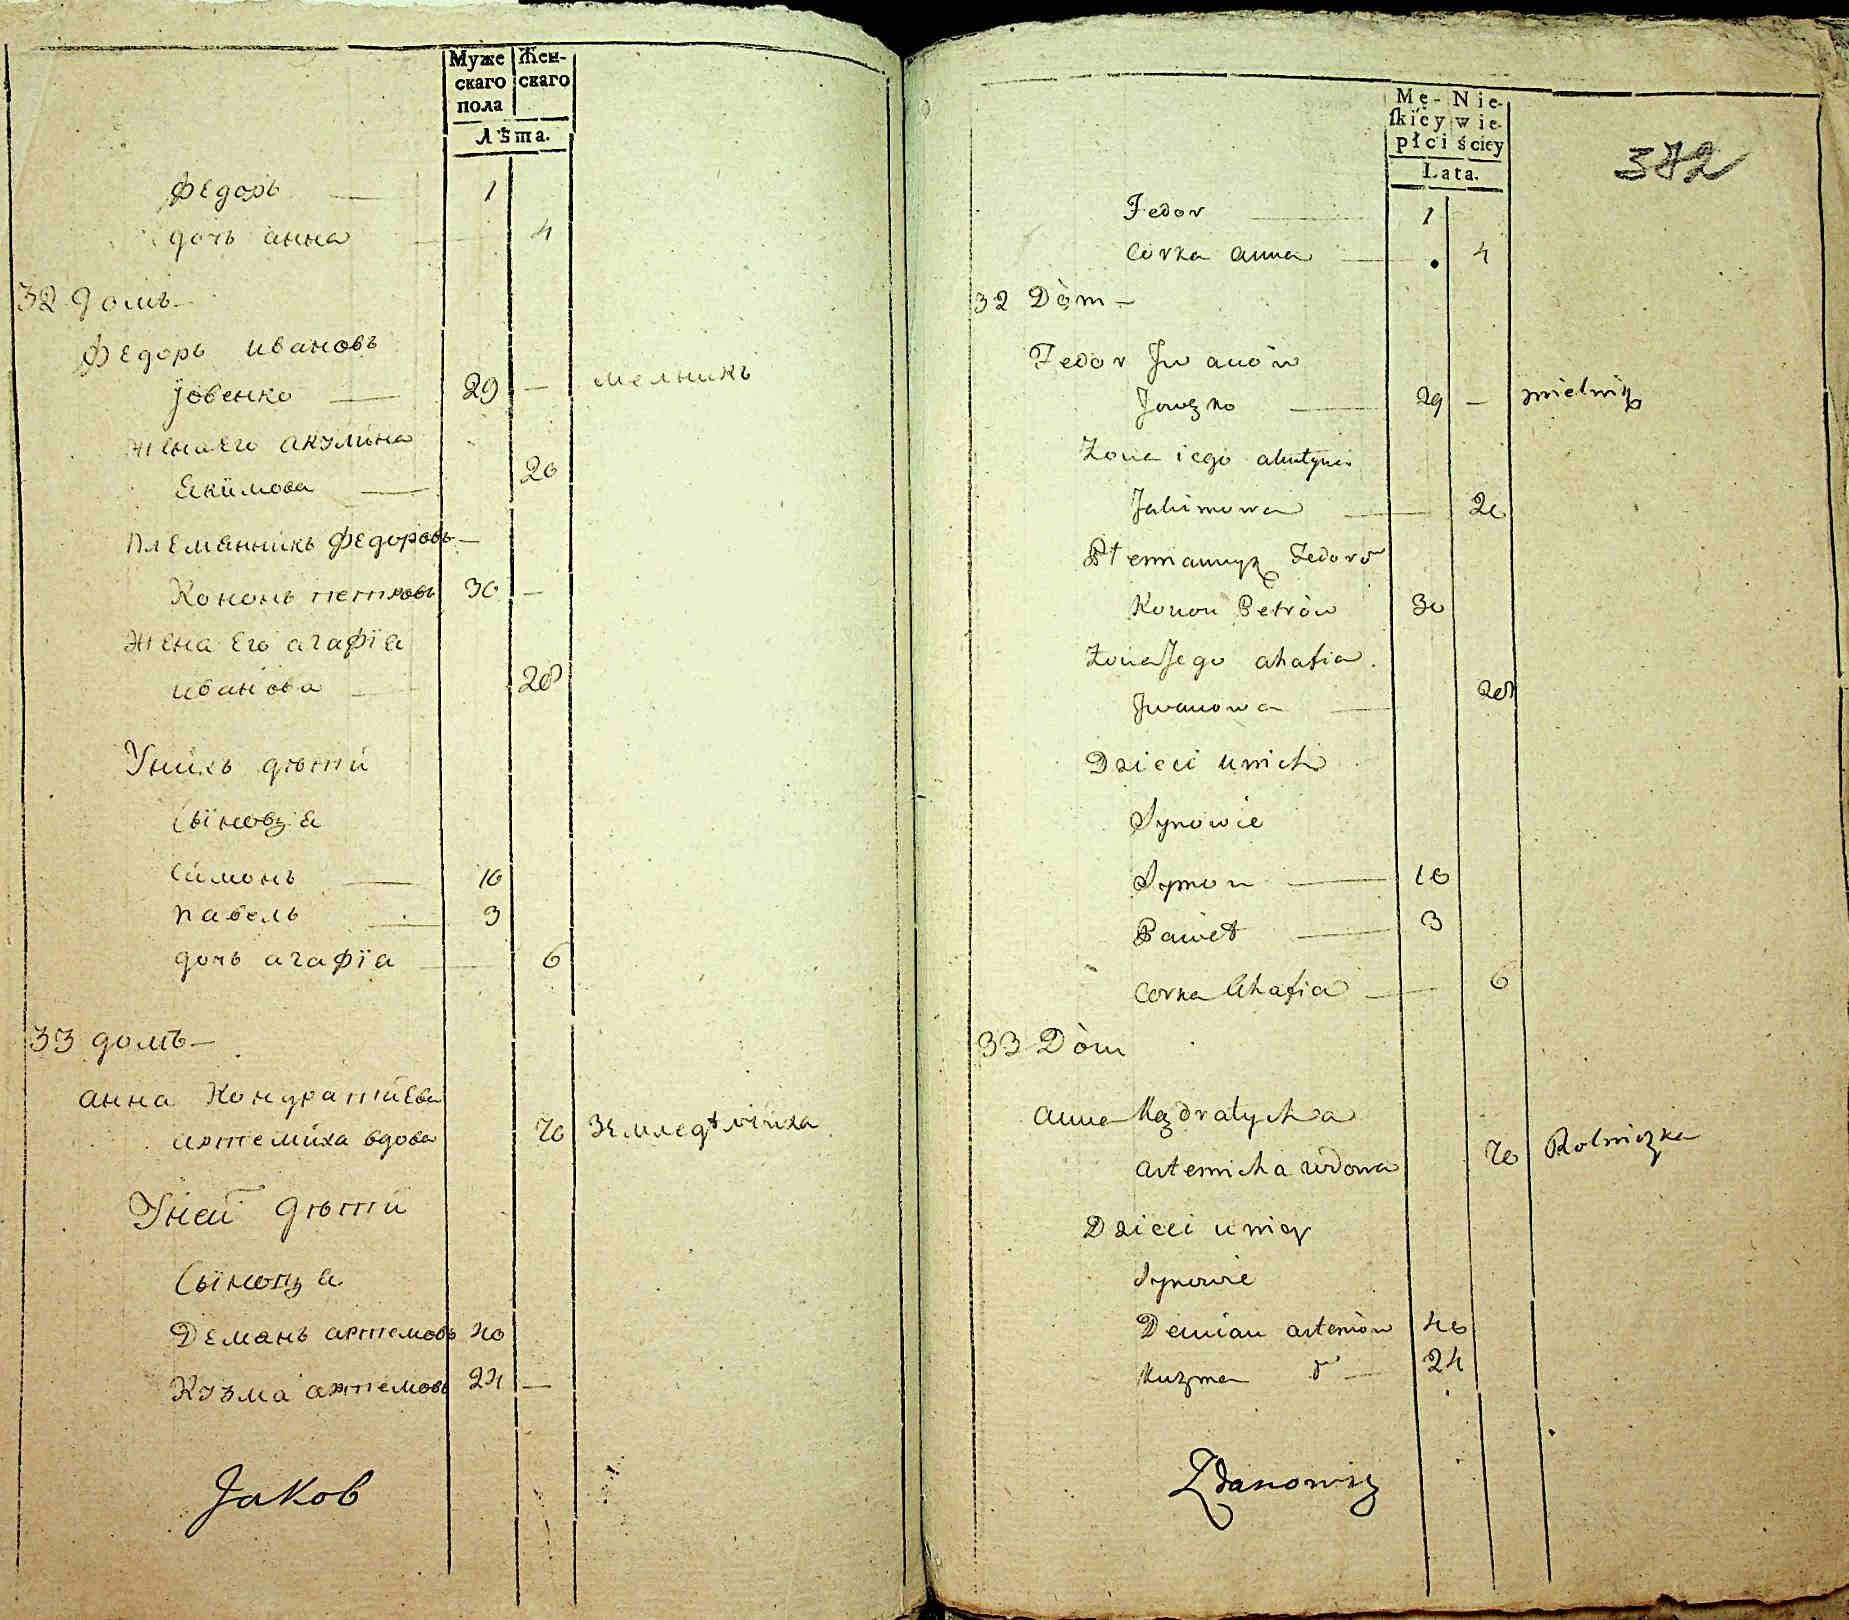 Муже Жен-
скаго скаго
пола
Лѣта.
Федоръ — 1
дочь анна — 4
32 домъ —
Федоръ ивановъ
Јовенко — 29 — мелникъ
жена его акулина
Екимова — 20
племанникъ Федоровъ —
Кононъ петровъ 30 —
жена его агафїа
иванова — 28
Унихъ дѣти
Сыновя
Симонъ — 10
павель — 3
дочь агафїа — 6
33 домъ —
анна Кондратиева
артемиха вдова 70 земледѣлчиха
Уней дѣти
Сыновя
Деманъ артемовъ 40
Кузма артемовъ 24 —
Jakob
Mę- Nie-
ſkiéy wie-
płci ściey
Lata.
372
Fedor — 1
Corka anna — . 4
32 Dòm —
Fedor Jwanów
Jowęko — 29 — mielnik
Zona iego akulyna
Jakimowa — 20
Płemiannyk Fedorów
Konon Petrów 30
Zona Jego ahafia
Jwanowa — 28
Dzieci unich
Synowie
Symon — 10
Paweł — 3
Corka Ahafia — 6
33 Dòm
Anna Kądratycha
artemicha wdowa 70 Rolniczka
Dzieci uniey
Synowie
Demian artemów 40
Kuzma d — 24
Zdanowicz